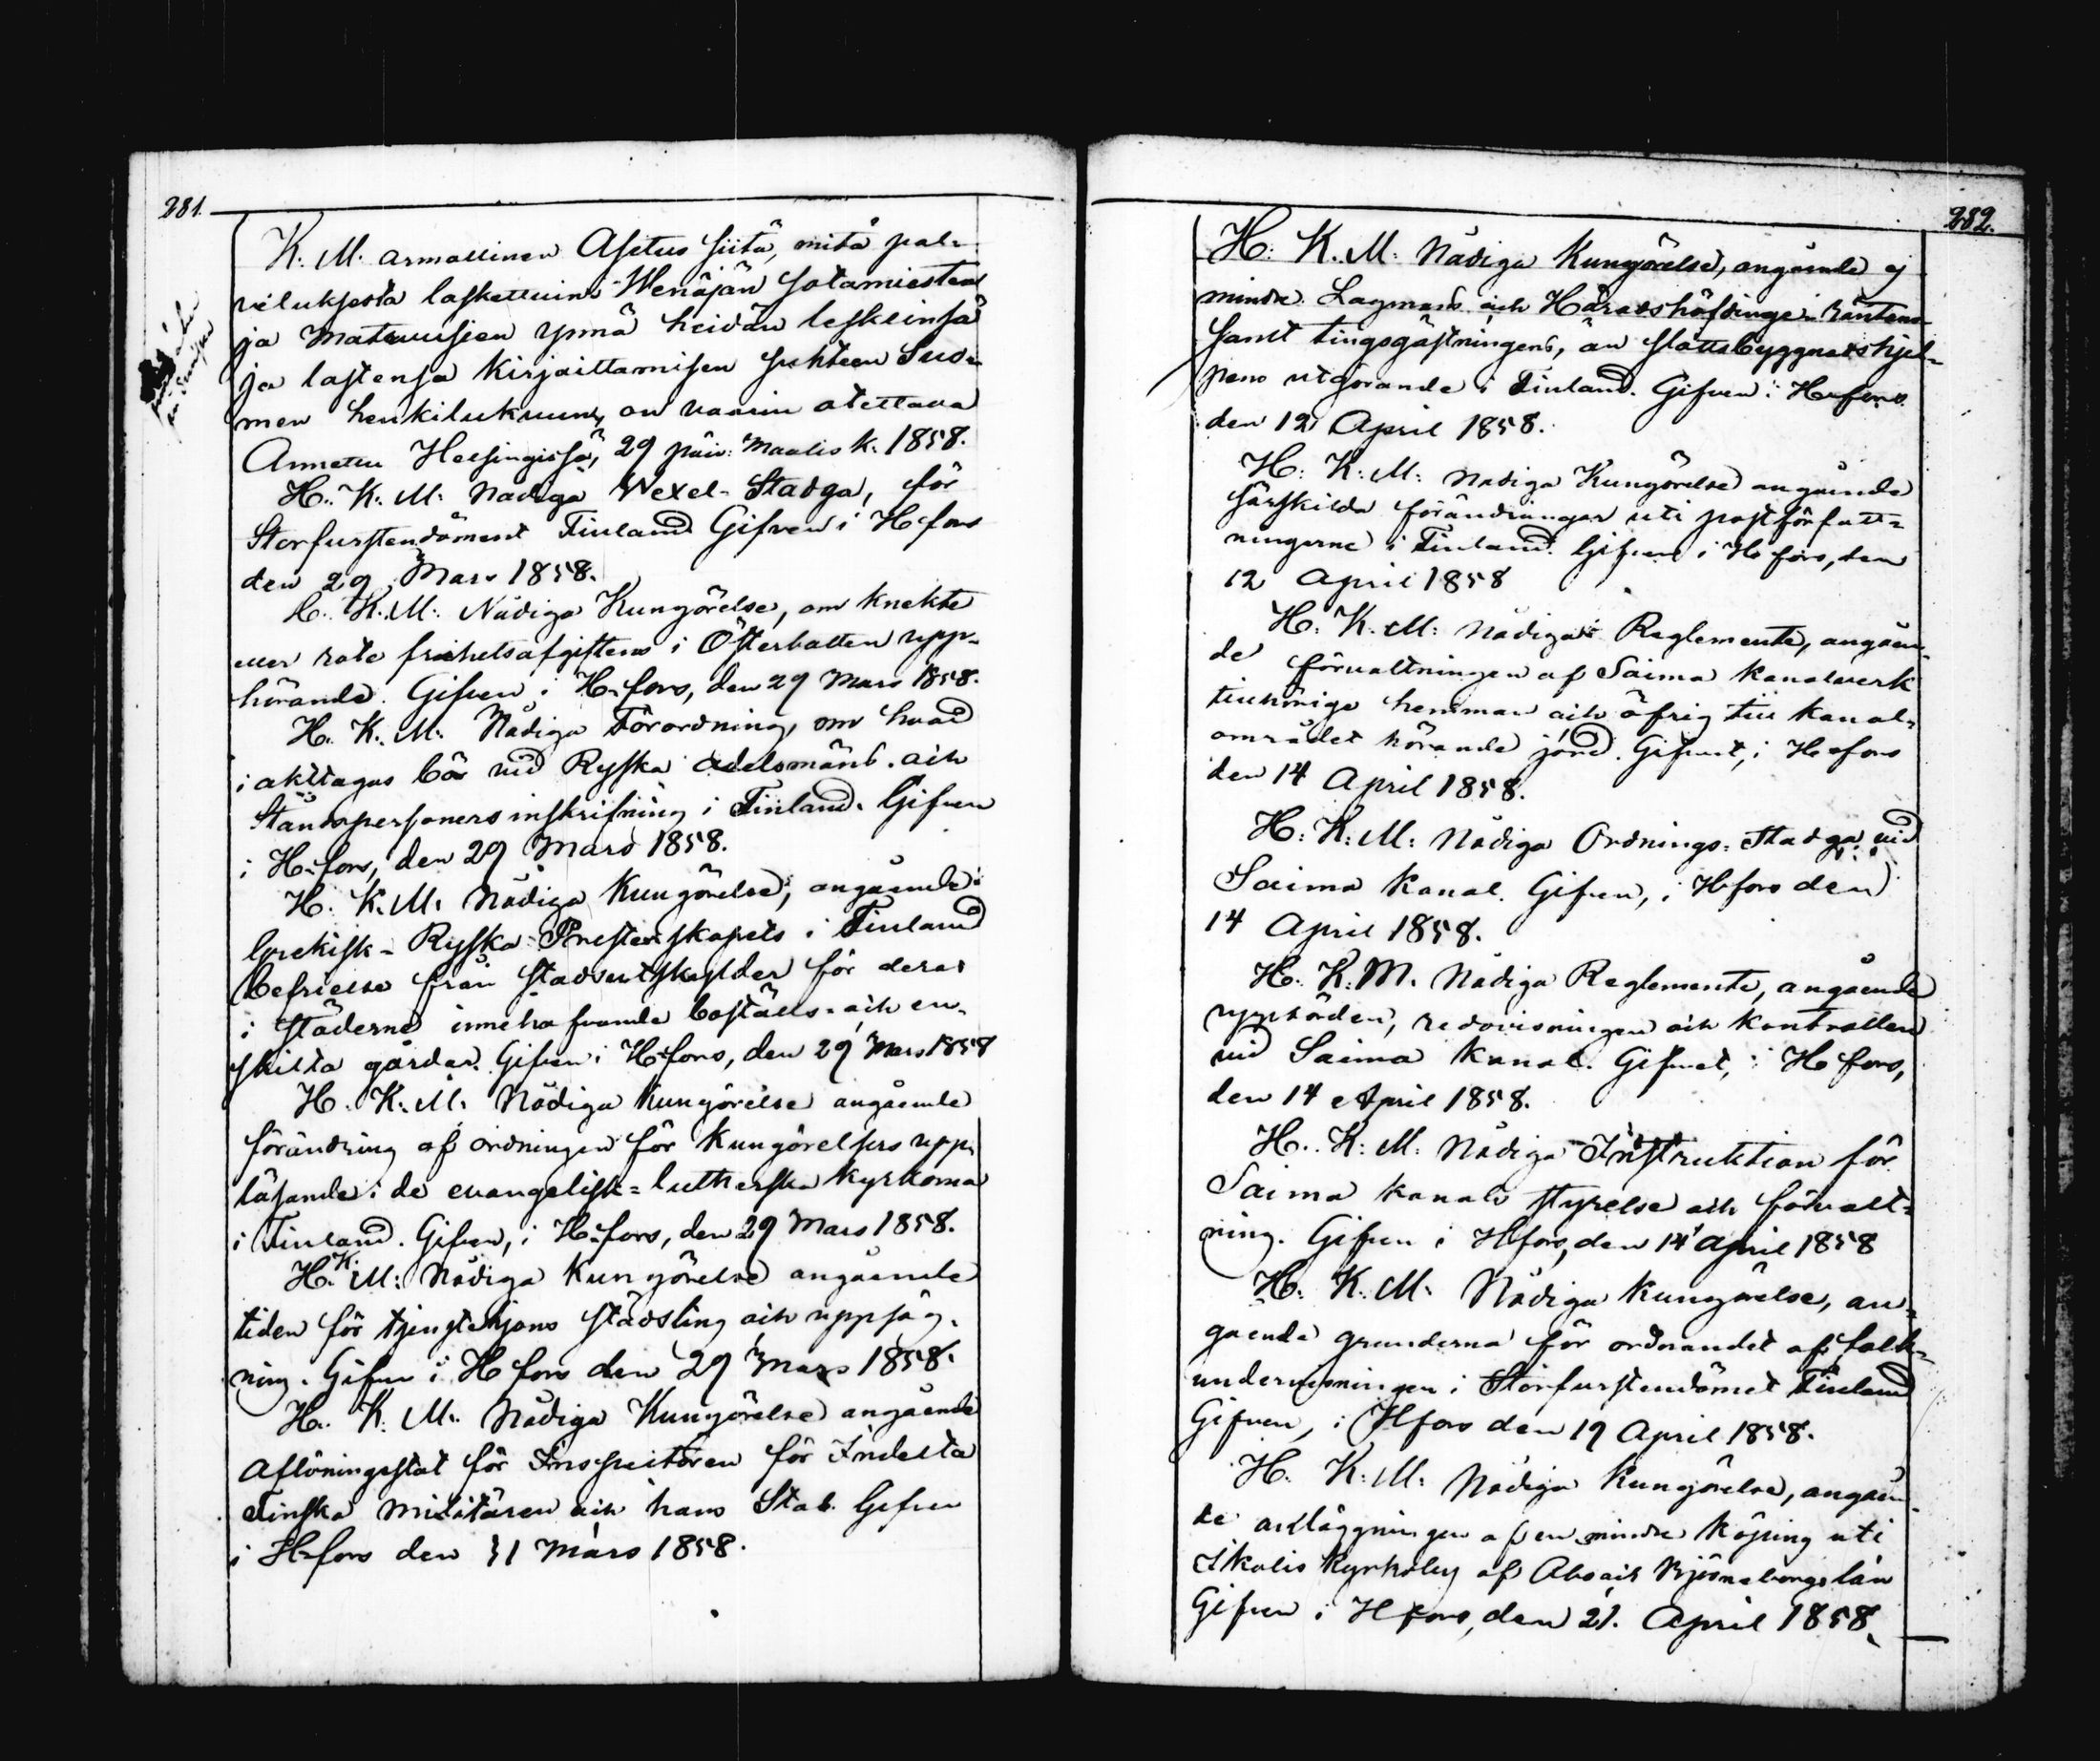 281.
K. M. armollinen Asetus siitä, mitä pal-
veluksesta laskettuin Wenäjän sotamiesten
ja Matruusien ynnä heidän leskeinsä
ja lastensa kirjoittamisen suhteen Suo-
men henkilukuun, on vaarin otettava
Annettu Helsingissä, 29 päiv: Maalis k. 1858.
H. K. M. Nådiga Vexel-Stadga, för
Storfurstendömmet Finland Gifven i H fors
den 29 Mars 1858.
H. K. M. Nådiga Kungörelse, om knekte
eller rote frihetsafgiftens i Österbotten upp-
hörande. Gifven i H-fors, den 29 Mars 1858.
H. K. M. Nådiga Förordning, om hvad
i akttagas bör vid Ryska adelsmäns och
Ståndspersoners inskrifning i Finland. Gifven
i H-fors, den 29 Mars 1858.
H. K. M. Nådiga Kungörelse, angående
Grekisk-Ryska Presterskapets i Finland
befrielse från stadsutskylder för deras
i städerne innehafvande boställs- och en-
skilta gårdar. Gifven i H-fors, den 29 Mars 1858
H. K. M. Nådiga Kungörelse angående
förändring af ordningen för Kungörelsers upp-
läsande i de evangelisk-lutherska kyrkorna
i Finland. Gifven, i H-fors, den 29 Mars 1858.
H. K. M: Nådiga Kungörelse angående
tiden för tjenstehjons städsling och uppsäg-
ning. Gifven i H fors den 29 Mars 1858.
H. K. M. Nådiga Kungörelse angående
Aflöningsstat för Inspektören för Indelta
Finska militären och hans Stab. Gifven
i H-fors den 31 Mars 1858.
282.
H. K. M. Nådiga Kungörelse, angående ej
mindre Lagmans och Häradshöfdinge räntans
samt tingsgästningens, än slottsbyggnadshjel-
pens utgörande i Finland. Gifven i H-fors
den 12 April 1858.
H. K. M. Nådiga Kungörelse angående
särskilda förändringar uti postförfatt-
ningarne i Finland. Gifven i H fors, den
12 April 1858
H. K. M: Nådiga Reglemente, angåen-
de förvaltningen af Saima Kanalverk
tillhörige hemman och öfrig till kanal-
området hörande jord. Gifvet, i H-fors
den 14 April 1858.
H: K: M: Nådiga Ordnings-Stadga vid
Saima Kanal. Gifven, i Hfors den
14 April 1858.
H. K. M. Nådiga Reglemente, angående
uppbörden, redovisningen och kontrollen
vid Saima Kanal. Gifvet, i H fors,
den 14 April 1858.
H. K. M. Nådiga Instruktion för
Saima kanals styrelse och förvalt-
ning. Gifven i Hfors, den 14 April 1858
H. K. M. Nådiga Kungörelse, an-
gående grunderna för ordnandet af folk-
undervisningen i Storfurstendömet Finland
Gifven, i Hfors den 19 April 1858.
H. K. M. Nådiga Kungörelse, angåen-
de anläggningen af en mindre Köping uti
Ikalis Kyrkoby af Åbo och Björneborgs län
Gifven i H fors, den 21. April 1858.